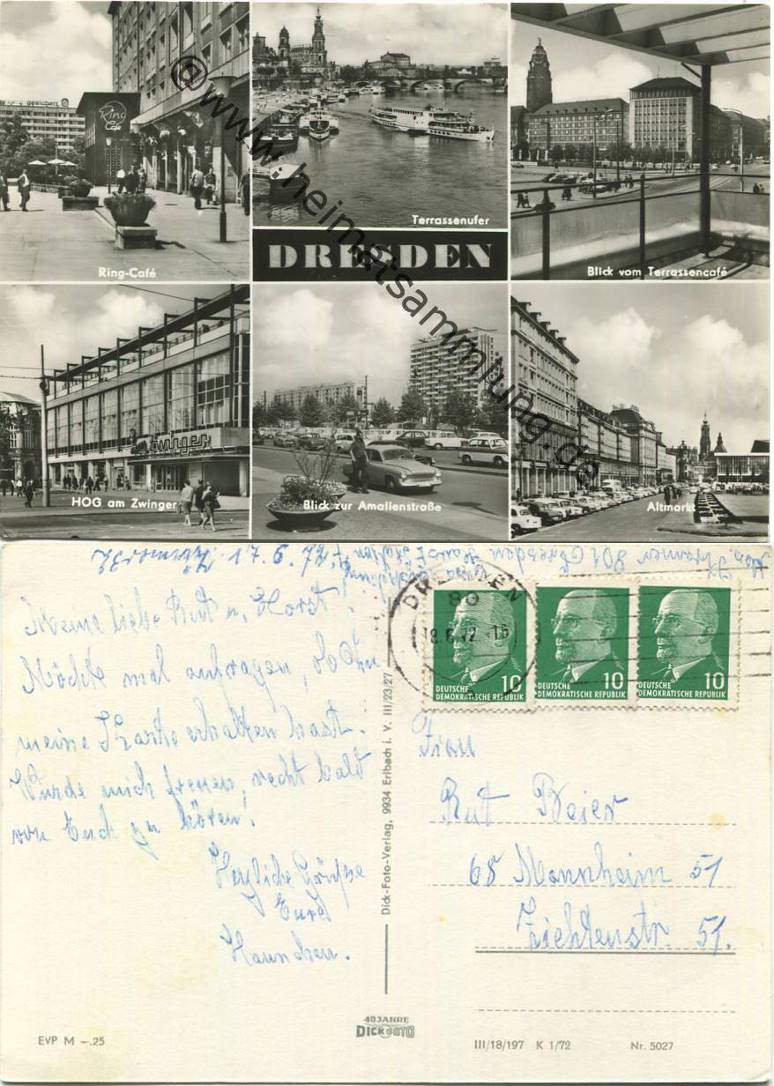 Ring Café
Ring-Café
Terrassenufer
DRESDEN
Blick vom Terrassencafé
HOG am Zwinger
Zwinger
Blick zur Amalienstraße
Altmarkt
@www.heimatsammlung.de
Meine liebe Rut u. Horst!
Möchte mal anfragen, ob Du
meine Karte erhalten hast.
Würde mich freuen, recht bald
von Euch zu hören!
Herzliche Grüsse
Eure
Hannchen.
Dick-Foto-Verlag, 9934 Erlbach i. V. III/23/27
DRESDEN
80
18.6.72 -15
10
DEUTSCHE
DEMOKRATISCHE REPUBLIK
10
DEUTSCHE
DEMOKRATISCHE REPUBLIK
10
DEUTSCHE
DEMOKRATISCHE REPUBLIK
Frau
Rut Beier
68 Mannheim 51
Ziethenstr. 51.
40 JAHRE
DICK FOTO
EVP M –.25
III/18/197 K 1/72 Nr. 5027